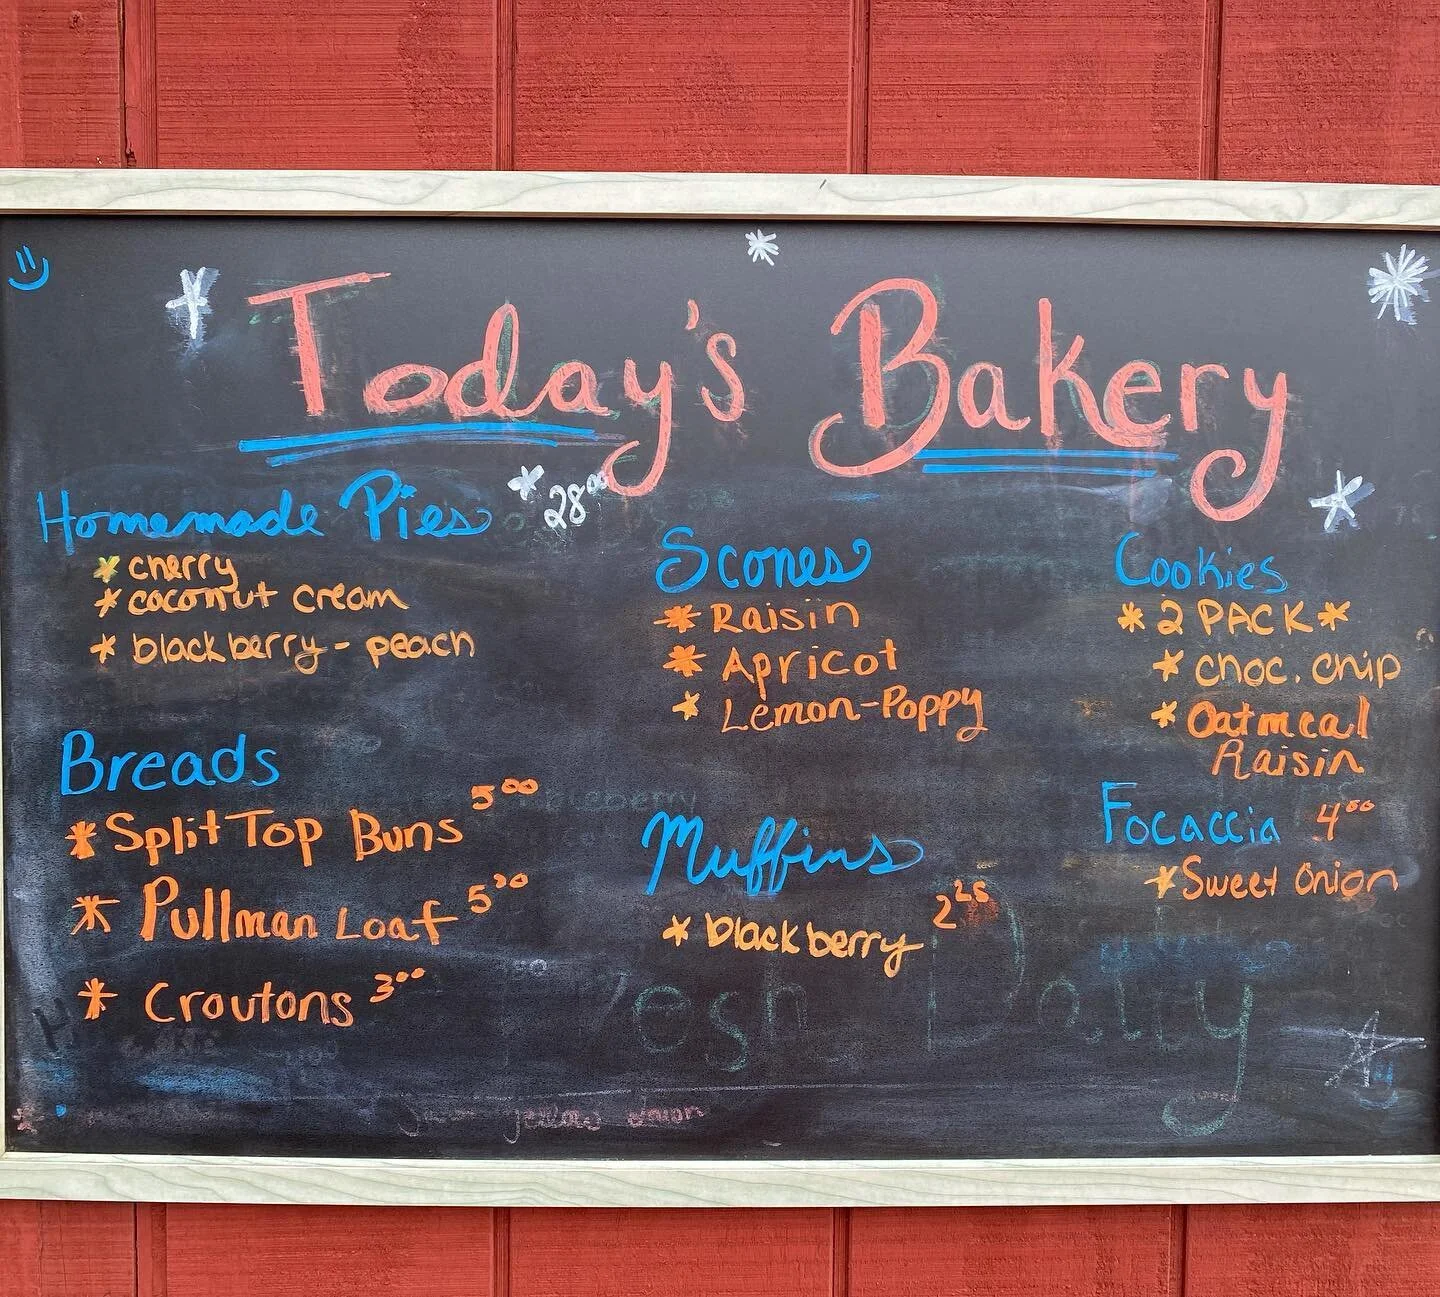 Today's Bakery
Homemade Pies *28⁰⁰
* cherry
* coconut cream
* blackberry - peach
Breads
* Split Top Buns 5⁰⁰
* Pullman Loaf 5⁵⁰
* Croutons 3⁰⁰
Scones
* Raisin
* Apricot
* Lemon-Poppy
Muffins
* blackberry 2²⁵
Cookies
* 2 PACK *
* choc. chip
* Oatmeal
Raisin
Focaccia 4⁰⁰
* Sweet Onion